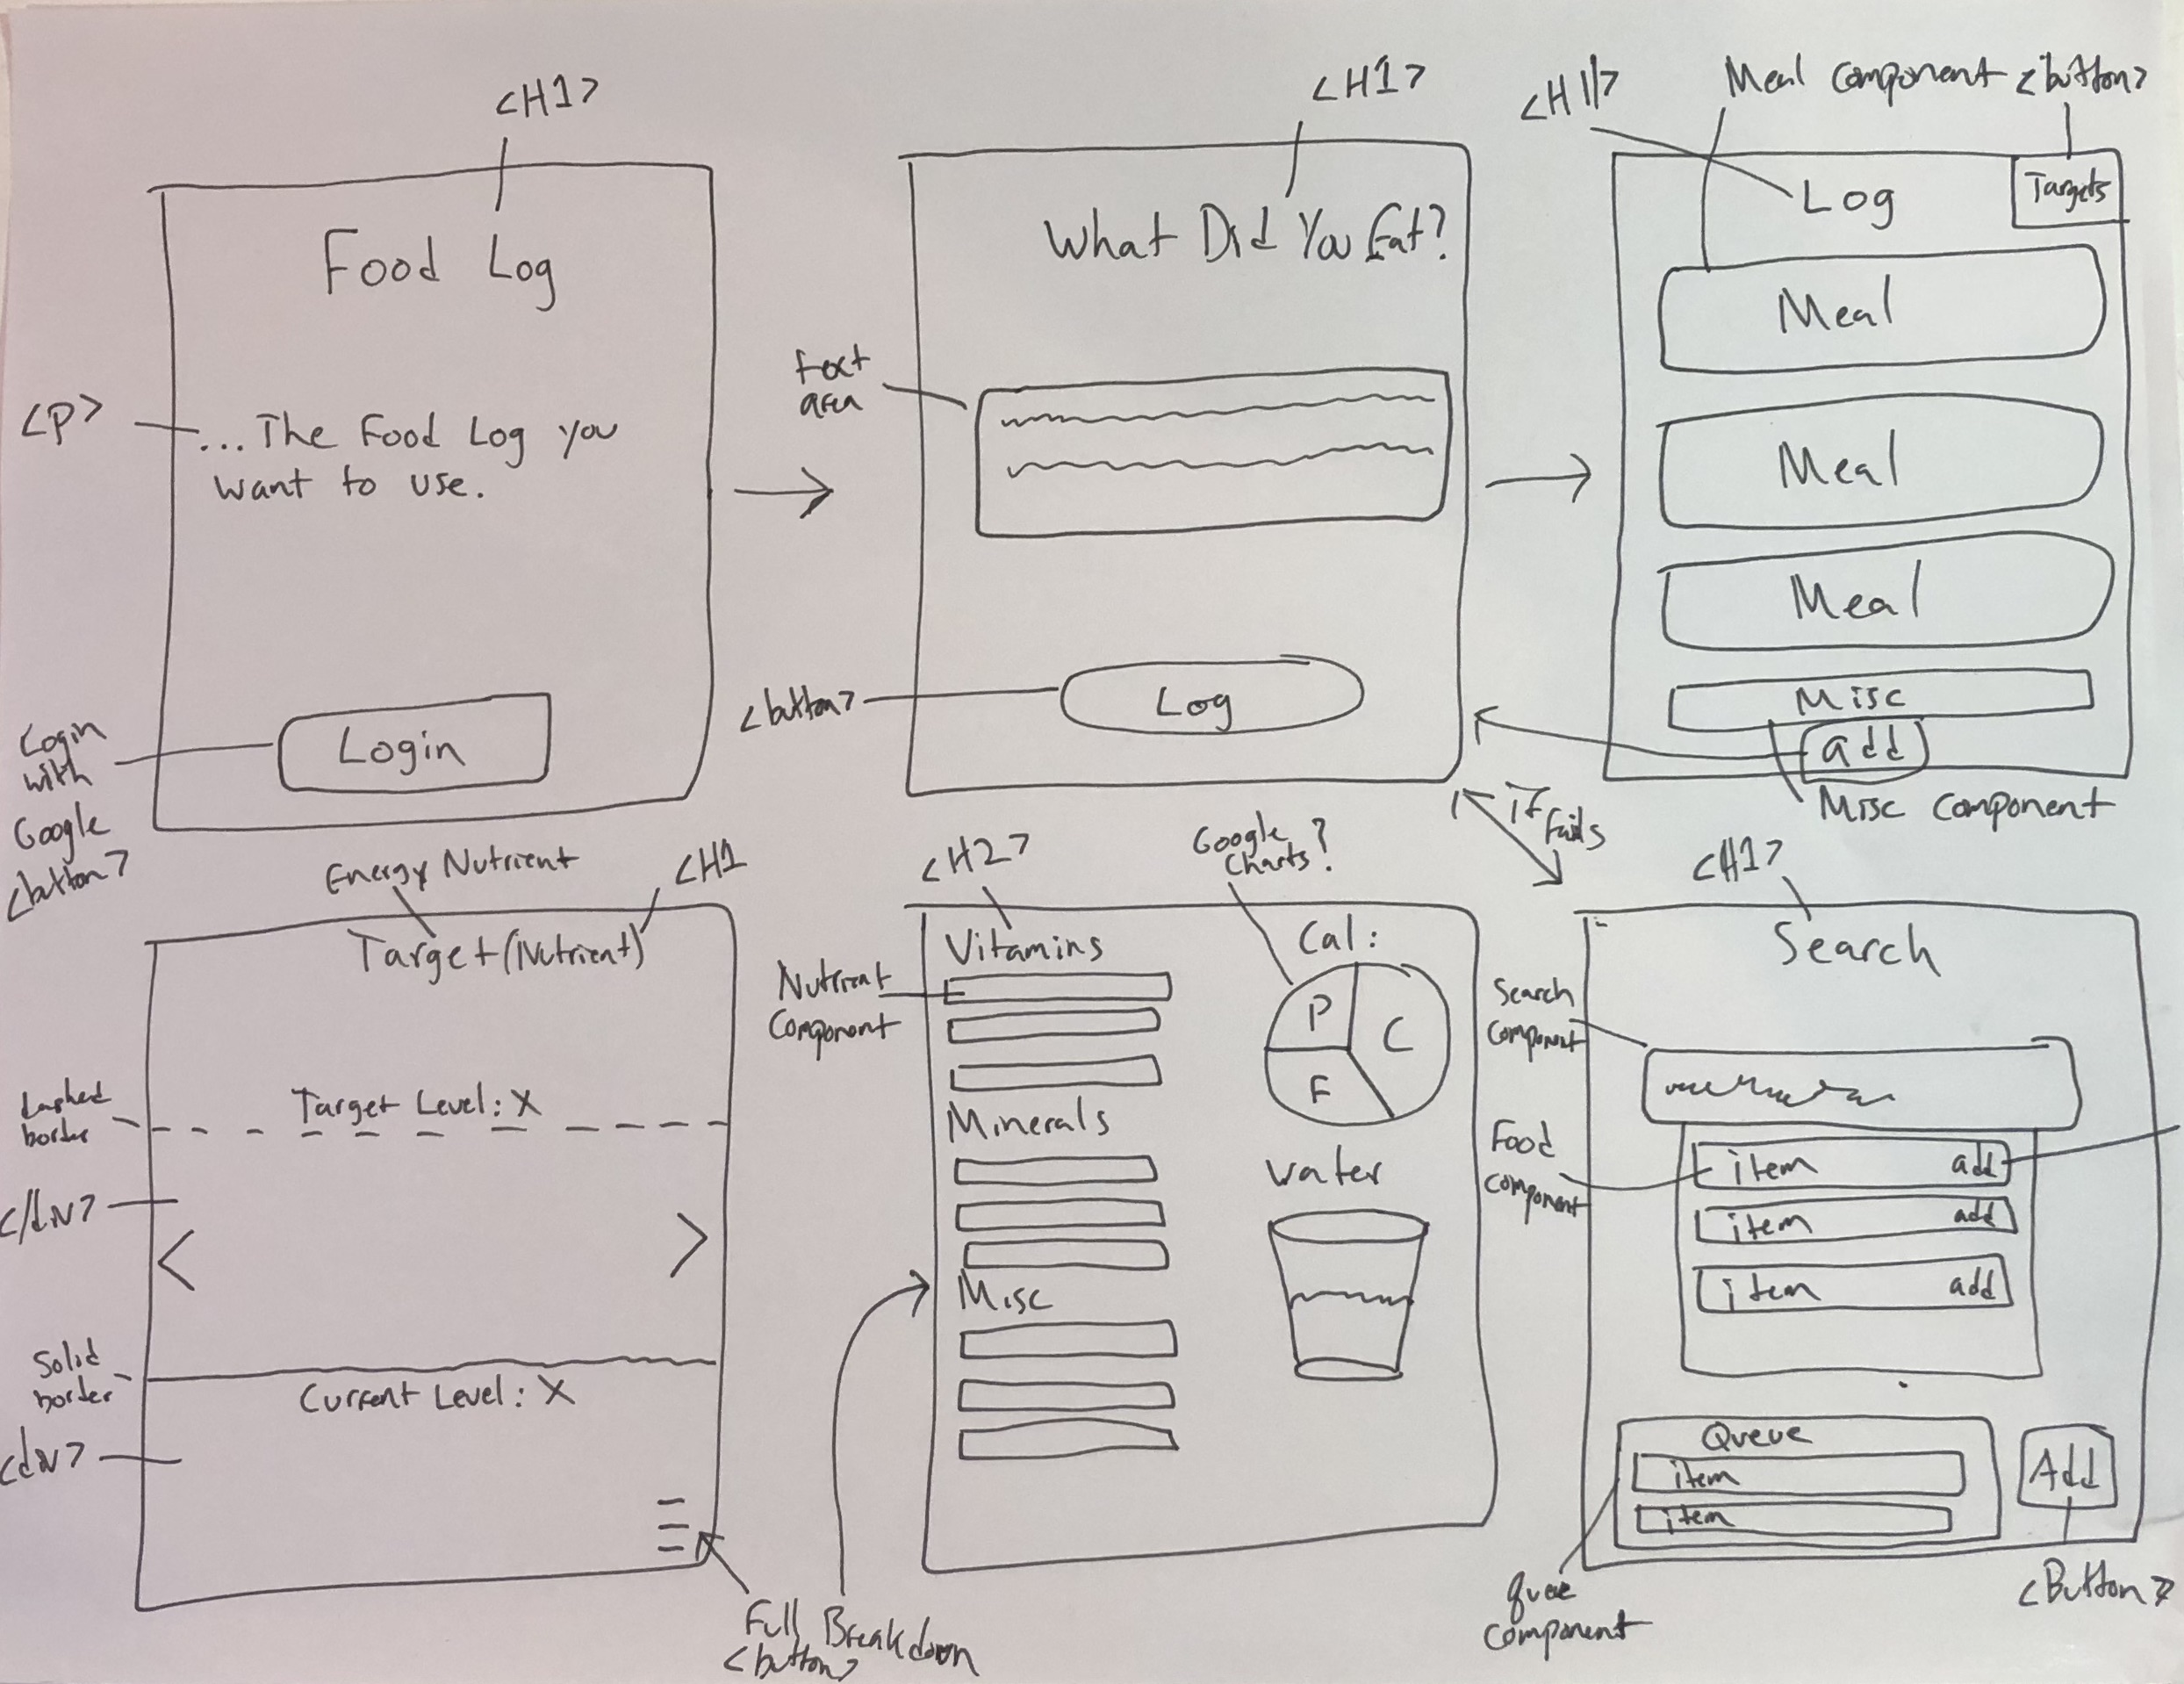 <H1>
Food Log
<P>
...The Food Log you
want to use.
Login
Login
with
Google
<button>
<H1>
What Did You Eat?
text
area
<button>
Log
<H1>
Meal Component
<button>
Log
Targets
Meal
Meal
Meal
Misc
add
Misc Component
if
fails
Energy Nutrient
<H1
Target (Nutrient)
dashed
border
Target Level: X
</div>
<
>
Solid
border
Current Level: X
<div>
Full Breakdown
<button>
<H2>
Google
Charts?
Vitamins
Nutrient
Component
Cal:
P
C
F
Minerals
Water
Misc
<H1>
Search
Search
Component
Food
Component
item add
item add
item add
Queue
item
item
Add
queue
component
<Button>